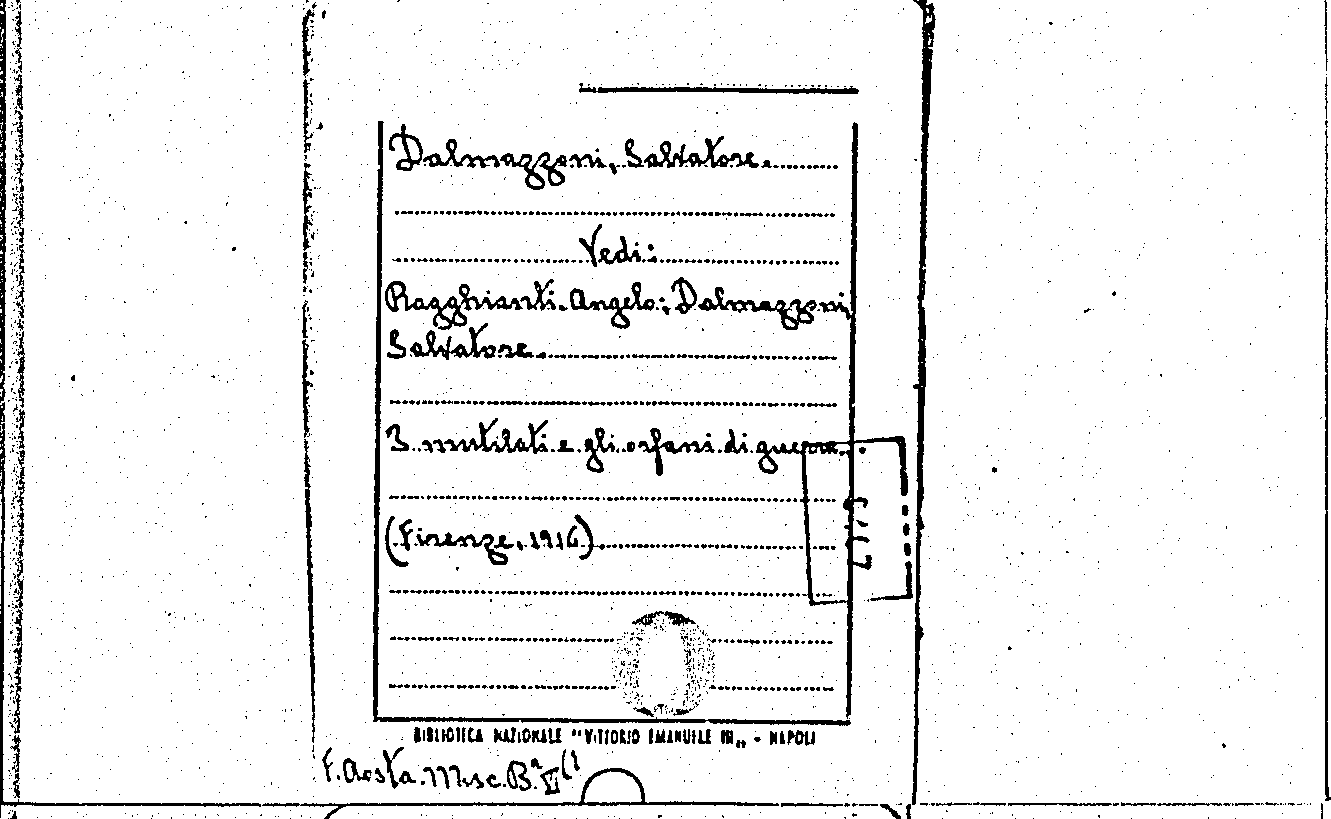 Dalmazzoni, Salvatore.
Vedi:
Ragghianti Angelo; Dalmazzoni,
Salvatore.
I mutilati e gli orfani di guerra.
(Firenze, 1916)
BIBLIOTECA NAZIONALE "VITTORIO EMANUELE III" - NAPOLI
F. Aosta. Misc. B.ª VI